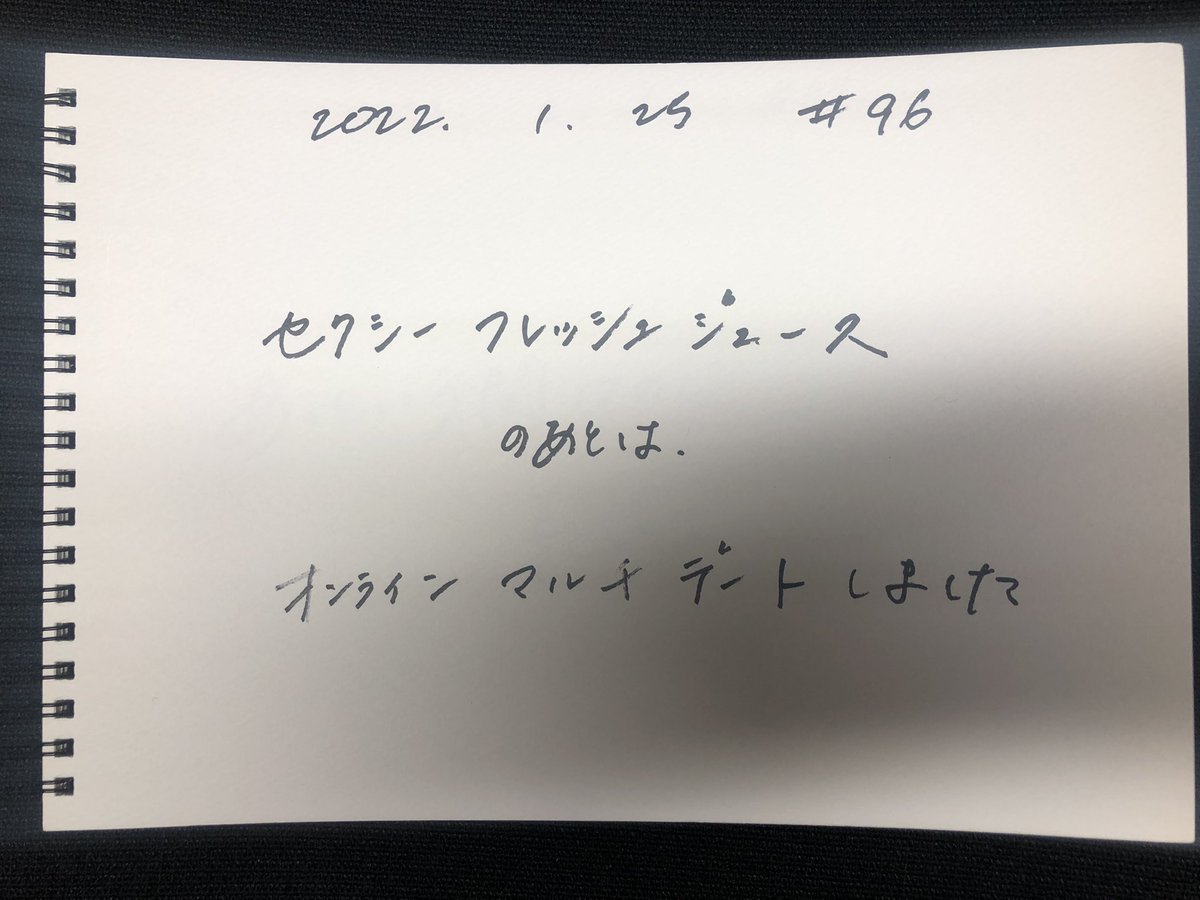 2022. 1. 25 #96
セクシー フレッシュ ジュース
のあとは.
オンライン マルチ デート しまけて